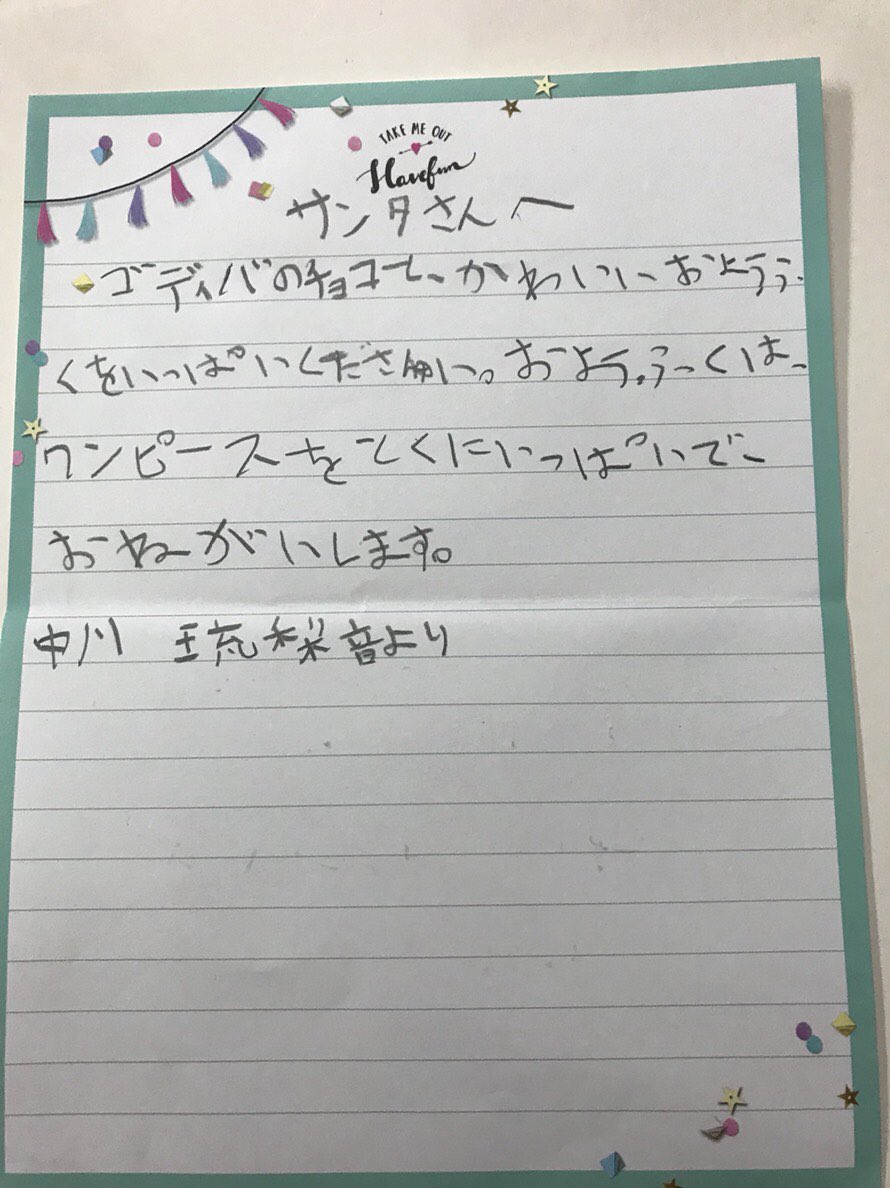 TAKE ME OUT
Havefun
サンタさんへ
ゴディバのチョコと、かわいいおようふ
くをいっぱいください。おようふくは、
ワンピースをとくにいっぱいで
おねがいします。
中川 琉梨音より